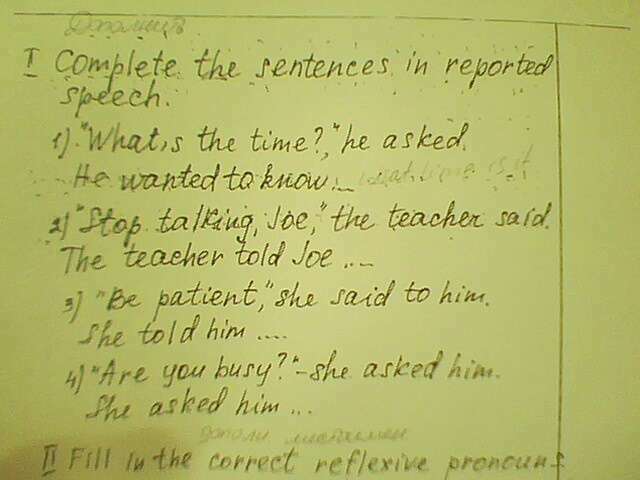 I Complete the sentences in reported
speech.
1) "What,s the time?," he asked.
He wanted to know...
2) "Stop talking, Joe," the teacher said.
The teacher told Joe ....
3) "Be patient," she said to him.
She told him ....
4) "Are you busy?" - she asked him.
She asked him ...
II Fill in the correct reflexive pronouns